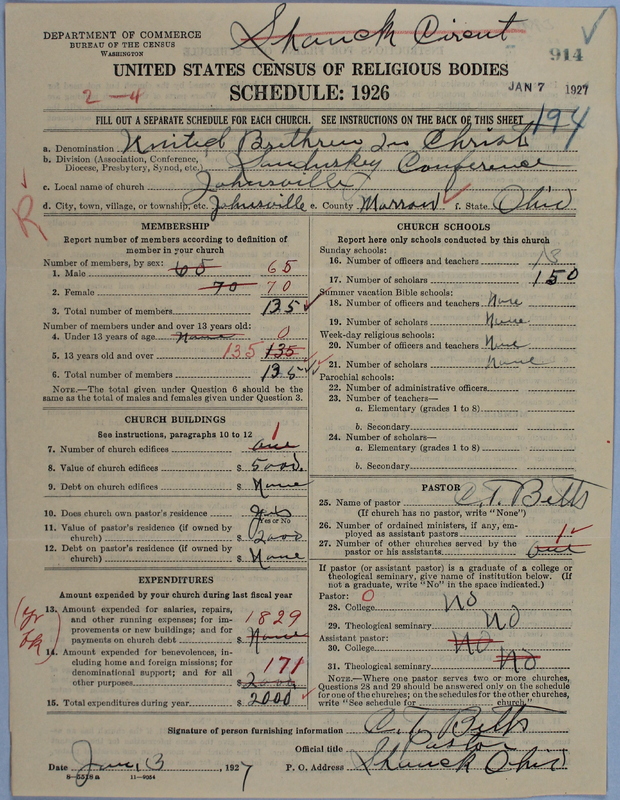 DEPARTMENT OF COMMERCE
BUREAU OF THE CENSUS
WASHINGTON
Shauck Circut
914
UNITED STATES CENSUS OF RELIGIOUS BODIES
JAN 7 1927
2-4
SCHEDULE: 1926
FILL OUT A SEPARATE SCHEDULE FOR EACH CHURCH. SEE INSTRUCTIONS ON THE BACK OF THIS SHEET
194
a. Denomination United Brethren In Christ
b. Division (Association, Conference, Diocese, Presbytery, Synod, etc.) Sandusky Conference
c. Local name of church Johnsville
d. City, town, village, or township, etc. Johnsville e. County Morrow f. State Ohio
R
MEMBERSHIP
Report number of members according to definition of member in your church
Number of members, by sex:
1. Male 65 65
2. Female 70 70
3. Total number of members 135
Number of members under and over 13 years old:
4. Under 13 years of age None 0
5. 13 years old and over 135 135
6. Total number of members 135
NOTE.—The total given under Question 6 should be
same as the total of males and females given under Question 3.
CHURCH BUILDINGS
See instructions, paragraphs 10 to 12
7. Number of church edifices one 1
8. Value of church edifices $ 5000.
9. Debt on church edifices $ None
10. Does church own pastor's residence Yes
Yes or No
11. Value of pastor's residence (if owned by
church) $ 2000
12. Debt on pastor's residence (if owned by
church) $ None
EXPENDITURES
Amount expended by your church during last fiscal year
13. Amount expended for salaries, repairs,
and other running expenses; for im-
provements or new buildings; and for
payments on church debt $ None 1829
14. Amount expended for benevolences, in-
cluding home and foreign missions; for
denominational support; and for all
other purposes $ 2000 171
15. Total expenditures during year $ 2000
CHURCH SCHOOLS
Report here only schools conducted by this church
Sunday schools:
16. Number of officers and teachers 18
17. Number of scholars 150
Summer vacation Bible schools:
18. Number of officers and teachers None
19. Number of scholars None
Week-day religious schools:
20. Number of officers and teachers None
21. Number of scholars None
Parochial schools:
22. Number of administrative officers
23. Number of teachers—
a. Elementary (grades 1 to 8)
b. Secondary
24. Number of scholars—
a. Elementary (grades 1 to 8)
b. Secondary
PASTOR
25. Name of pastor C. T. Betts
(If church has no pastor, write "None")
26. Number of ordained ministers, if any, em-
ployed as assistant pastors 1
27. Number of other churches served by the
pastor or his assistants one
If pastor (or assistant pastor) is a graduate of a college or
theological seminary, give name of institution below. (If
not a graduate, write "No" in the space indicated.)
Pastor: 0
28. College No
29. Theological seminary No
Assistant pastor:
30. College No
31. Theological seminary No
NOTE.—Where one pastor serves two or more churches,
Questions 28 and 29 should be answered only on the schedule
for one of the churches; on the schedules for the other churches,
write "See schedule for church."
Signature of person furnishing information C. T. Betts
Official title Pastor
Date Jan, 3, 1927 P. O. Address Shauck Ohio
8-5518a 11-9054